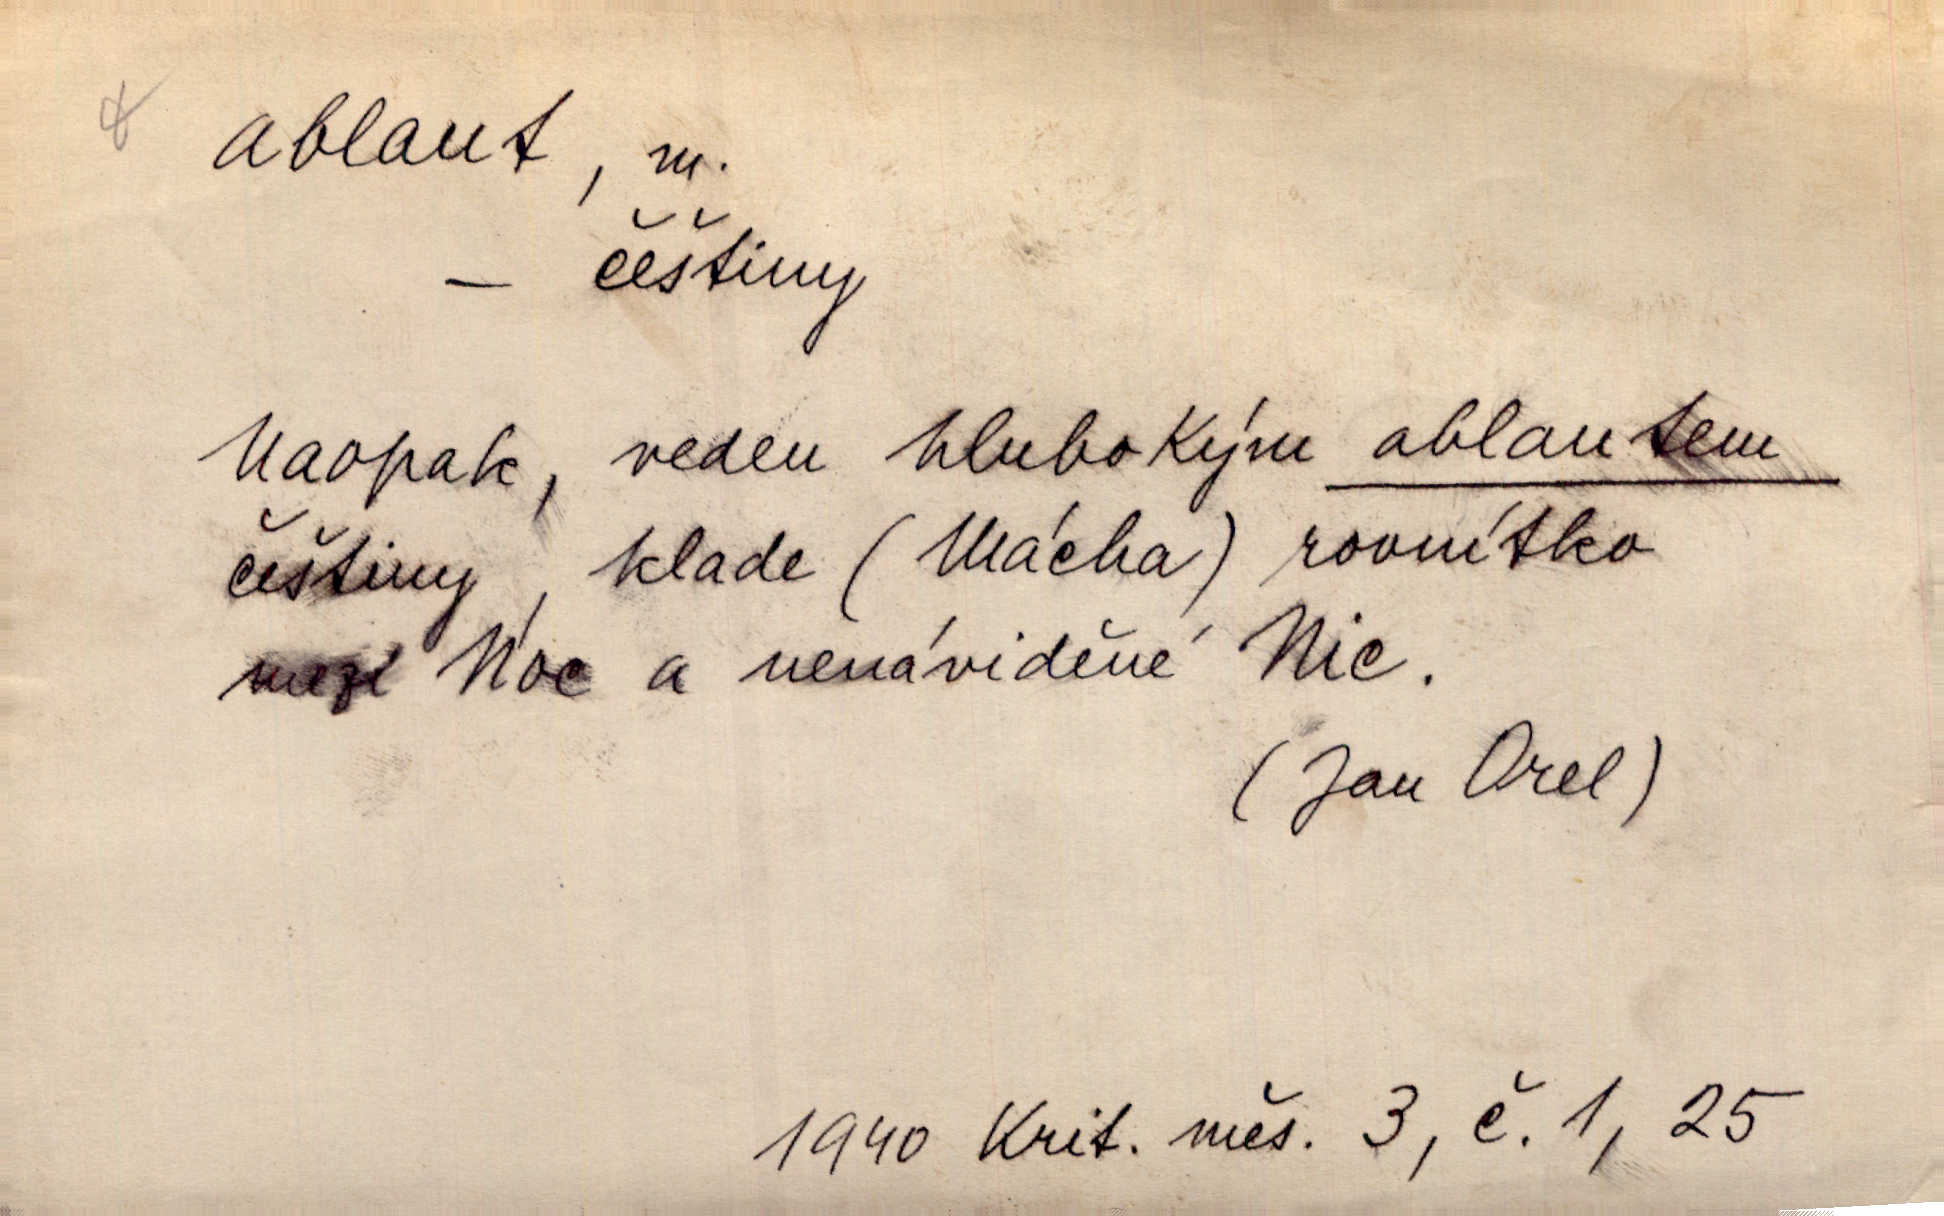 ablaut, m.
— češtiny
Naopak, veden hlubokým ablautem
češtiny, klade (Mácha) rovnítko
mezi Noc a nenáviděné Nic.
(Jan Orel)
1940 Krit. měs. 3, č. 1, 25